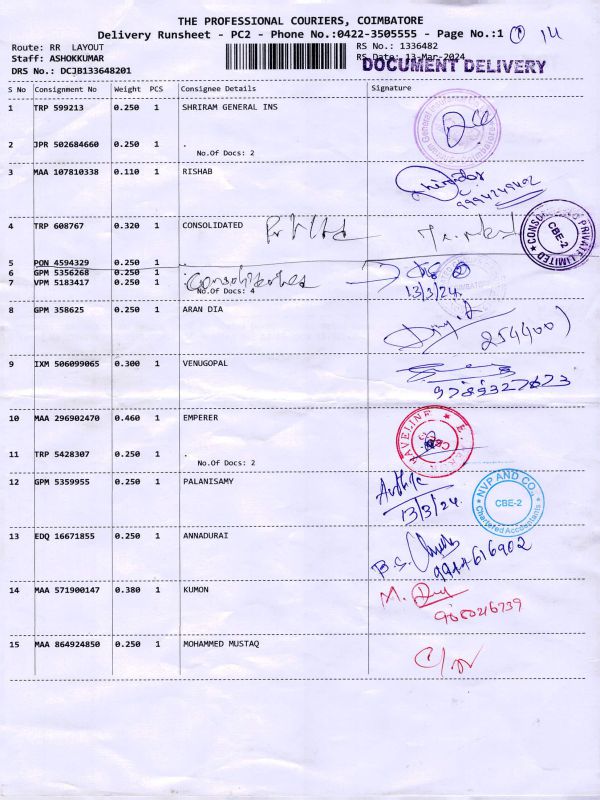 THE PROFESSIONAL COURIERS, COIMBATORE
Delivery Runsheet - PC2 - Phone No.:0422-3505555 - Page No.:1 1 14
Route: RR LAYOUT RS No.: 1336482
Staff: ASHOKKUMAR RS Date: 13-Mar-2024
DRS No.: DCJB133648201 DOCUMENT DELIVERY
S No Consignment No Weight PCS Consignee Details Signature
1 TRP 599213 0.250 1 SHRIRAM GENERAL INS
2 JPR 502684660 0.250 1 .
No.Of Docs: 2
3 MAA 107810338 0.110 1 RISHAB
4 TRP 608767 0.320 1 CONSOLIDATED
CONSO PRIVATE LIMITED CBE-2
5 PON 4594329 0.250 1 .
6 GPM 5356268 0.250 1 .
7 VPM 5183417 0.250 1 .
No.Of Docs: 4
13/3/24.
8 GPM 358625 0.250 1 ARAN DIA
9 IXM 506099065 0.300 1 VENUGOPAL
9789327673
10 MAA 296902470 0.460 1 EMPERER
11 TRP 5428307 0.250 1 .
No.Of Docs: 2
12 GPM 5359955 0.250 1 PALANISAMY
13/3/24.
NVP AND CO. CBE-2 Chartered Accountants
13 EDQ 16671855 0.250 1 ANNADURAI
9944616902
14 MAA 571900147 0.380 1 KUMON
15 MAA 864924850 0.250 1 MOHAMMED MUSTAQ